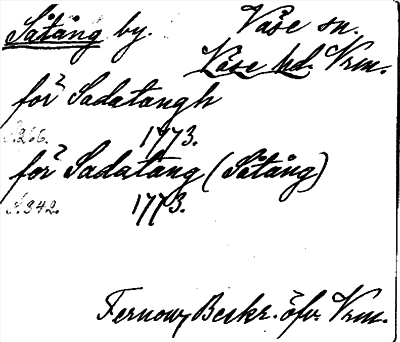 Såtång by. Väse sn.
Väse hd. Vrm.
för Sadatangh
S.266. 1773.
för Sadatang (Såtång)
S.342. 1773.
Fernow, Beskr. öfv. Vrm.